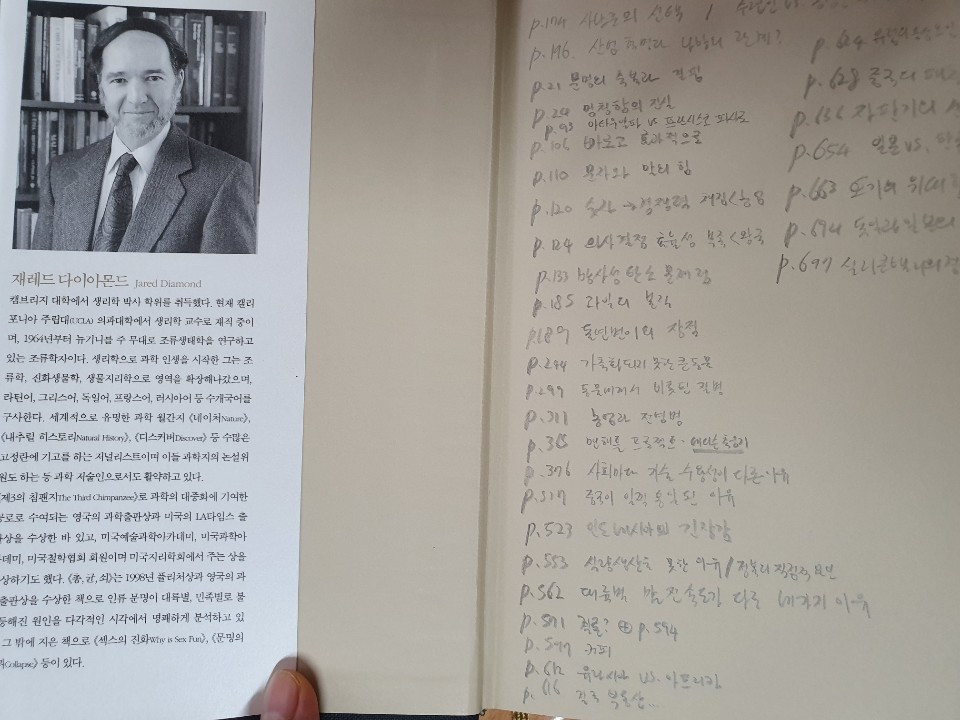 재레드 다이아몬드 Jared Diamond
캠브리지 대학에서 생리학 박사 학위를 취득했다. 현재 캘리
포니아 주립대(UCLA) 의과대학에서 생리학 교수로 재직 중이
며, 1964년부터 뉴기니를 주 무대로 조류생태학을 연구하고
있는 조류학자이다. 생리학으로 과학 인생을 시작한 그는 조
류학, 진화생물학, 생물지리학으로 영역을 확장해나갔으며,
라틴어, 그리스어, 독일어, 프랑스어, 러시아어 등 수개국어를
구사한다. 세계적으로 유명한 과학 월간지 《네이처Nature》,
《내추럴 히스토리Natural History》, 《디스커버Discover》 등 수많은
고정란에 기고를 하는 저널리스트이며 이들 과학지의 논설위
원도 하는 등 과학 저술인으로서도 활약하고 있다.
《제3의 침팬지The Third Chimpanzee》로 과학의 대중화에 기여한
공로로 수여되는 영국의 과학출판상과 미국의 LA타임스 출
판상을 수상한 바 있고, 미국예술과학아카데미, 미국과학아
카데미, 미국철학협회 회원이며 미국지리학회에서 주는 상을
수상하기도 했다. 《총, 균, 쇠》는 1998년 퓰리처상과 영국의 과
출판상을 수상한 책으로 인류 문명이 대륙별, 민족별로 불
등해진 원인을 다각적인 시각에서 명쾌하게 분석하고 있
그 밖에 지은 책으로 《섹스의 진화Why is Sex Fun》, 《문명의
Collapse》 등이 있다.
p.174 선택 /
p.196. 산업
p.21 문명의 축복과
p.24 멍청함의 진실
p.93 아타우알파 vs 프란시스코 피사로
p.106 빠르고 효과적으로
p.110 문자와 맞먹는 힘
p.120 → 경쟁력 채집<농업
p.124 의사결정 효율성 부족<왕국
p.133 방사성 탄소 문제점
p.185 과일의 본질
p.189 돌연변이의 장점
p.244 가축화되지 못한 큰 동물
p.299 동물에게서 비롯된 질병
p.311 농업과 전염병
p.376 사회마다 기술 수용성이 다른 이유
p.517 중국이 일찍 통일된 이유
p.523 인도네시아의 긴장감
p.553 식량생산을 못한 이유 /
p.562 대륙별 발전속도가 다른 네가지 이유
p.591 ? ⊕ p.594
p.599 커피
p.612 유라시아 vs. 아프리카
p.616 결국
p.624 유럽의
p.628 중국의
p.636
p.654 일본 vs.
p.663 도기의 위대한
p.694 독일과 일본의
p.697 실리콘밸리의